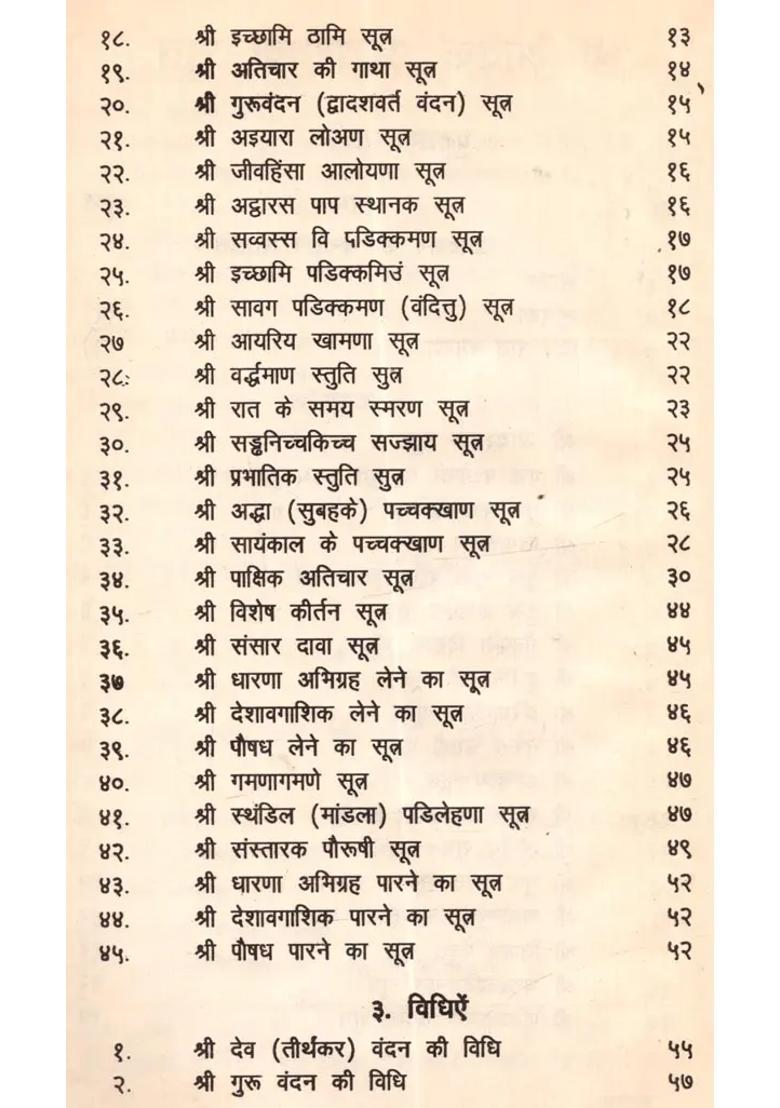 १८. श्री इच्छामि ठामि सूत्र १३
१९. श्री अतिचार की गाथा सूत्र १४
२०. श्री गुरूवंदन (द्वादशवर्त वंदन) सूत्र १५
२१. श्री अइयारा लोअण सूत्र १५
२२. श्री जीवहिंसा आलोयणा सूत्र १६
२३. श्री अट्ठारस पाप स्थानक सूत्र १६
२४. श्री सव्वस्स वि पडिक्कमण सूत्र १७
२५. श्री इच्छामि पडिक्कमिउं सूत्र १७
२६. श्री सावग पडिक्कमण (वंदित्तु) सूत्र १८
२७ श्री आयरिय खामणा सूत्र २२
२८: श्री वर्द्धमाण स्तुति सुत्र २२
२९. श्री रात के समय स्मरण सूत्र २३
३०. श्री सड्ढनिच्चकिच्च सज्झाय सूत्र २५
३१. श्री प्रभातिक स्तुति सुत्र २५
३२. श्री अद्धा (सुबहके) पच्चक्खाण सूत्र २६
३३. श्री सायंकाल के पच्चक्खाण सूत्र २८
३४. श्री पाक्षिक अतिचार सूत्र ३०
३५. श्री विशेष कीर्तन सूत्र ४४
३६. श्री संसार दावा सूत्र ४५
३७ श्री धारणा अभिग्रह लेने का सूत्र ४५
३८. श्री देशावगाशिक लेने का सूत्र ४६
३९. श्री पौषध लेने का सूत्र ४६
४०. श्री गमणागमणे सूत्र ४७
४१. श्री स्थंडिल (मांडला) पडिलेहणा सूत्र ४७
४२. श्री संस्तारक पौरूषी सूत्र ४९
४३. श्री धारणा अभिग्रह पारने का सूत्र ५२
४४. श्री देशावगाशिक पारने का सूत्र ५२
४५. श्री पौषध पारने का सूत्र ५२
३. विधिऐं
१. श्री देव (तीर्थंकर) वंदन की विधि ५५
२. श्री गुरू वंदन की विधि ५७